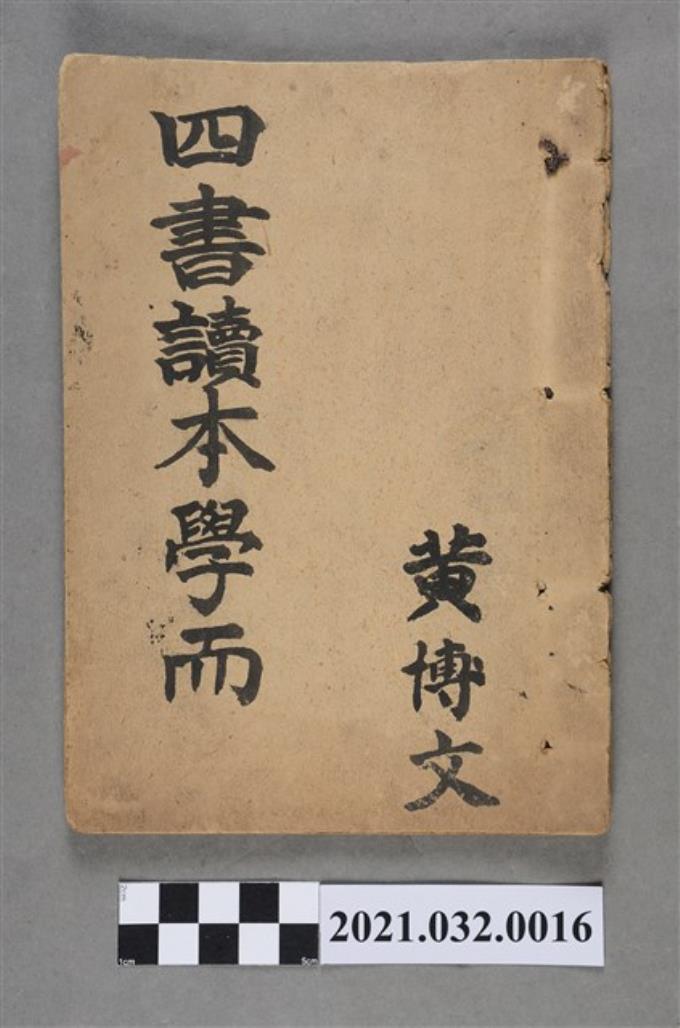 四書讀本學而
黄博文
2021.032.0016
1cm
5cm